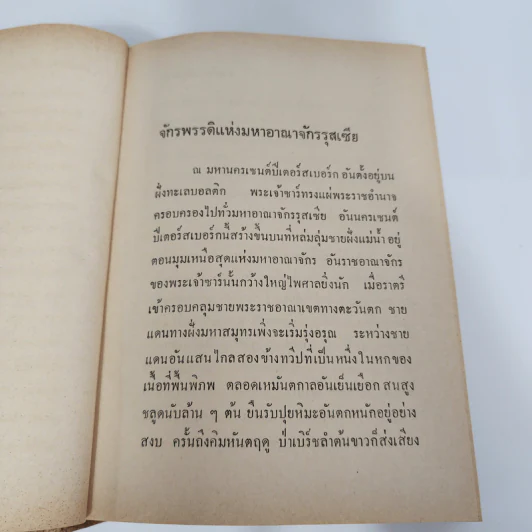 จักรพรรดิแห่งมหาอาณาจักรรุสเซีย
ณ มหานครเซนต์ปีเตอร์สเบอร์ก อันตั้งอยู่บน
ฝั่งทะเลบอลติก พระเจ้าซาร์ทรงแผ่พระราชอำนาจ
ครอบครองไปทั่วมหาอาณาจักรรุสเซีย อันนครเซนต์
ปีเตอร์สเบอร์กนี้สร้างขึ้นบนที่หล่มลุ่มชายฝั่งแม่น้ำ อยู่
ตอนมุมเหนือสุดแห่งมหาอาณาจักร อันราชอาณาจักร
ของพระเจ้าซาร์นั้นกว้างใหญ่ไพศาลยิ่งนัก เมื่อราตรี
เข้าครอบคลุมชายพระราชอาณาเขตทางตะวันตก ชาย
แดนทางฝั่งมหาสมุทรเพิ่งจะเริ่มรุ่งอรุณ ระหว่างชาย
แดนอันแสนไกลสองข้างทวีปที่เป็นหนึ่งในหกของ
เนื้อที่พื้นพิภพ ตลอดเหมันตกาลอันเย็นเยือก สนสูง
ชลูดนับล้าน ๆ ต้น ยืนรับปุยหิมะอันตกหนักอยู่อย่าง
สงบ ครั้นถึงคิมหันตฤดู ป่าเบิร์ชลำต้นขาวก็ส่งเสียง